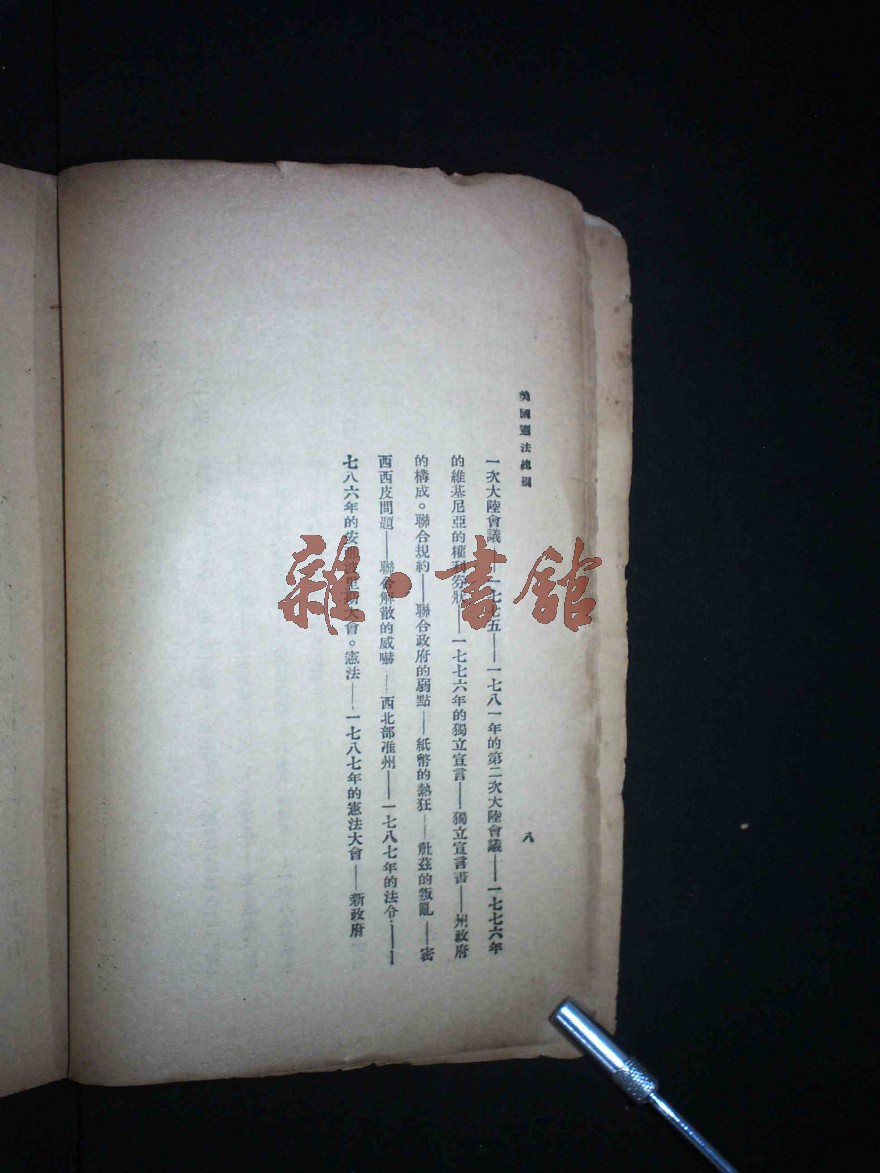 美國憲法總綱
八
一次大陸會議——一七七五——一七八一年的第二次大陸會議——一七七六年
的維基尼亞的權利券狀——一七七六年的獨立宣言——獨立宣言書——州政府
的構成。聯合規約——聯合政府的弱點——紙幣的熱狂——的叛亂——密
西西皮問題——聯合解散的威嚇——西北部准州——一七八七年的法令——一
七八六年的安那波里斯大會。憲法——一七八七年的憲法大會——新政府
雜·書館